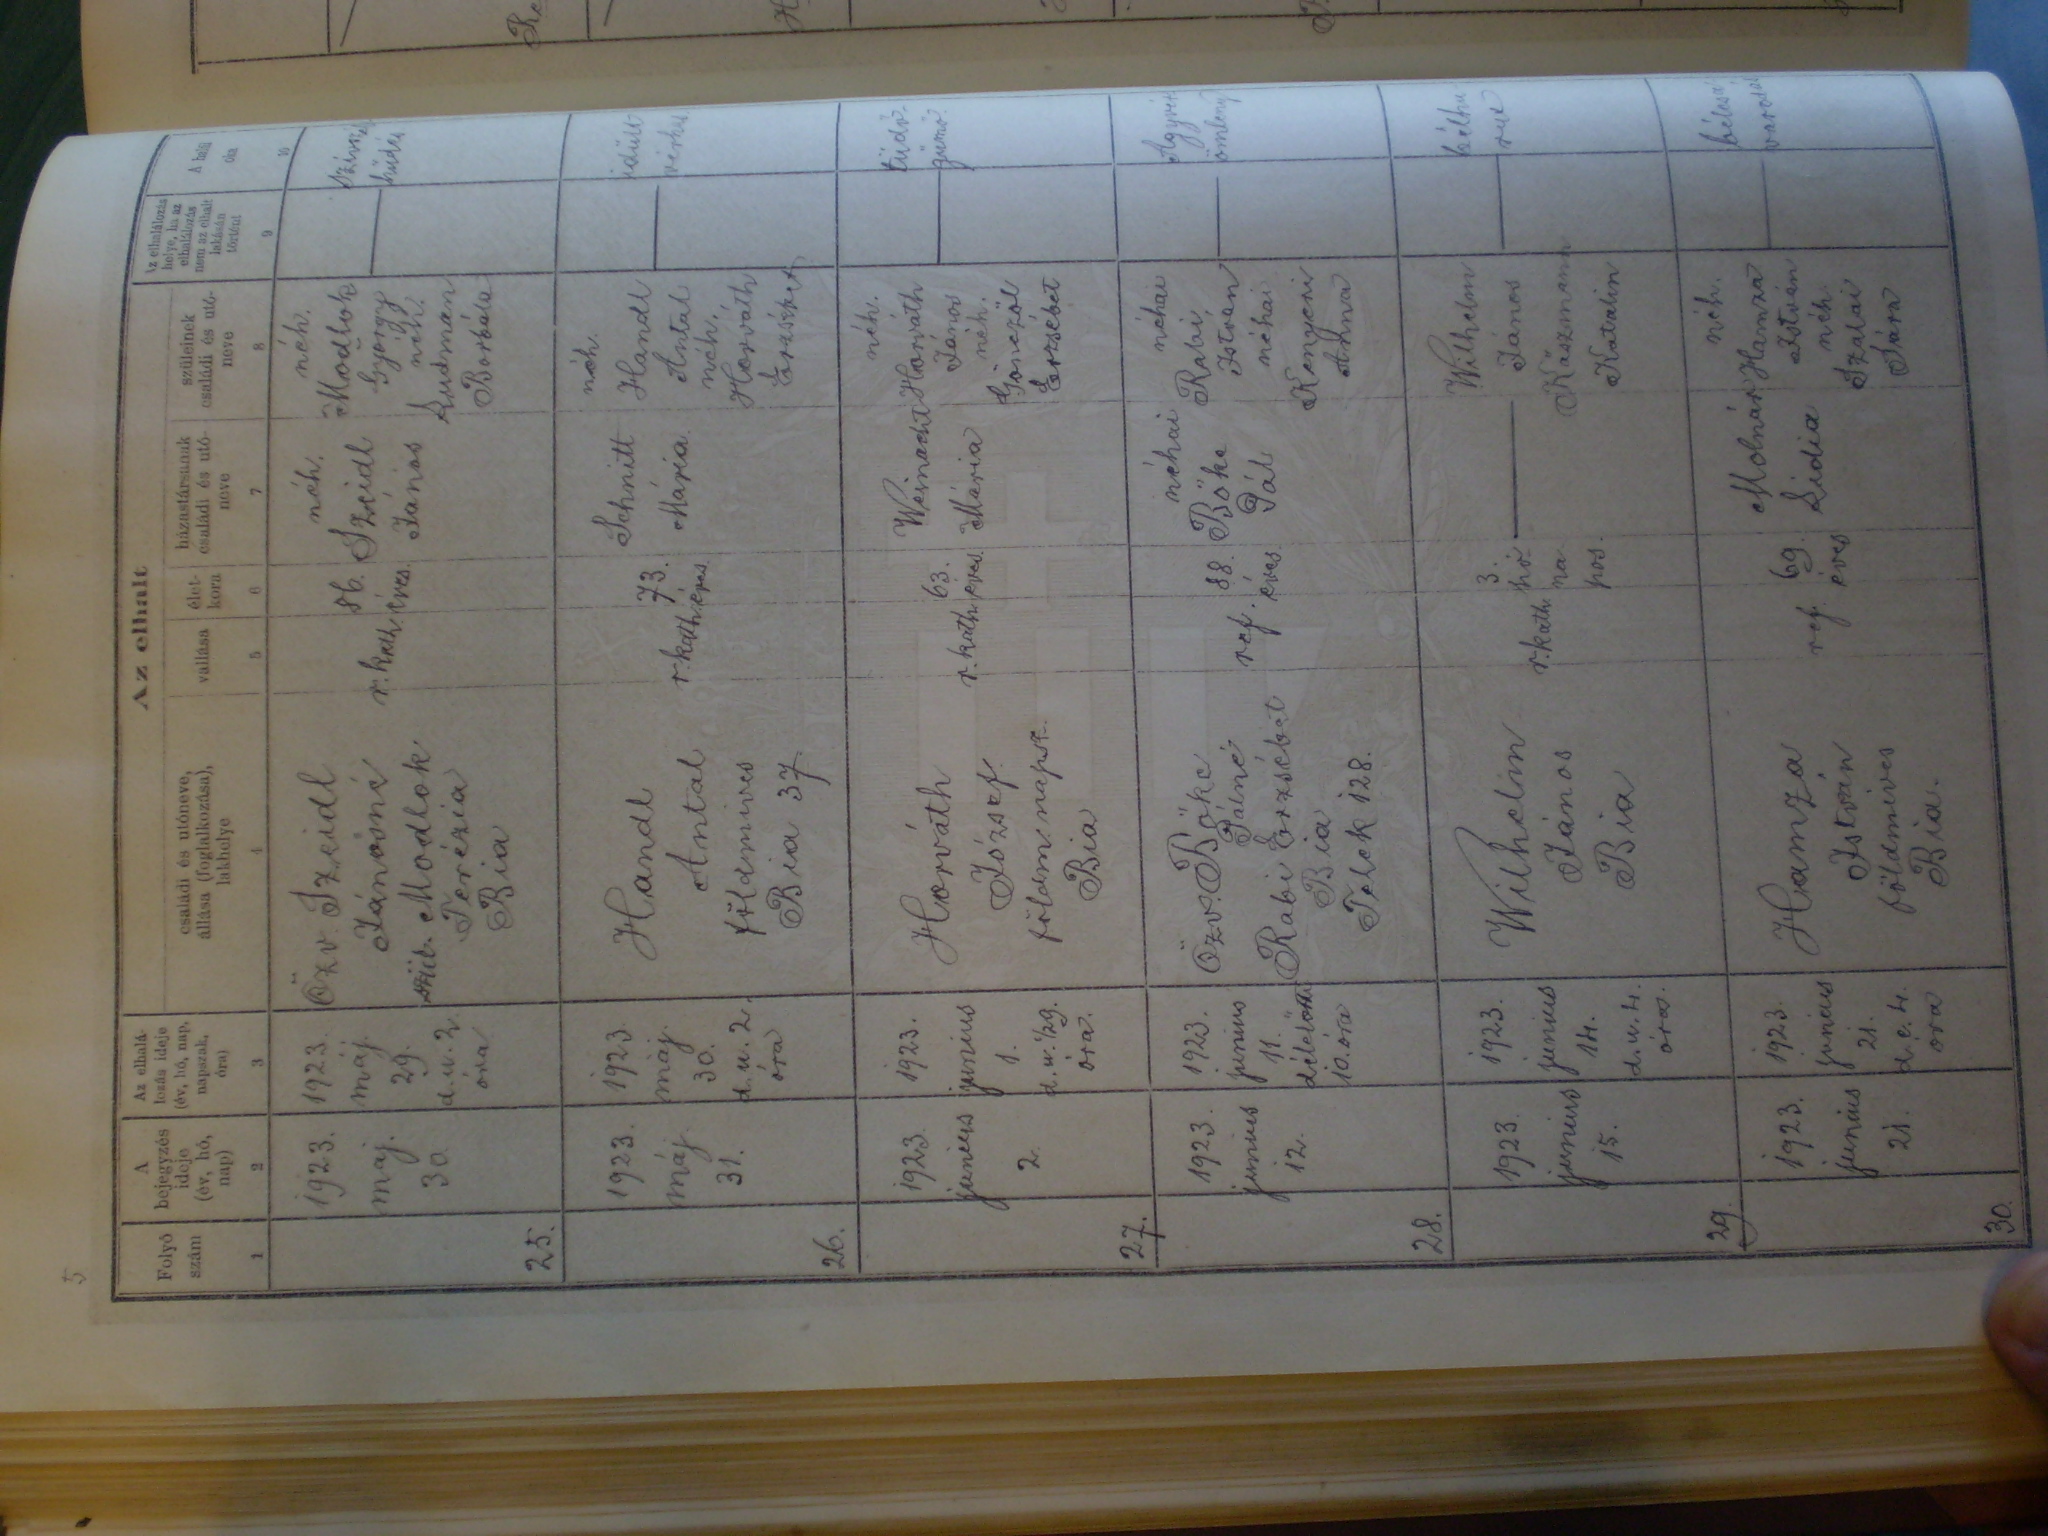 5
Az elhalt
Folyó
szám
A
bejegyzés
ideje
(év, hó,
nap)
Az elhalá-
lozás ideje
(év, hó, nap,
napszak,
óra)
családi és utóneve,
állása (foglalkozása),
lakhelye
vallása
élet-
kora
házastársának
családi és utó-
neve
szüleinek
családi és utó-
neve
Az elhalálozás
helye, ha az
elhalálozás
nem az elhalt
lakásán
történt
A halál
oka
1
2
3
4
5
6
7
8
9
10
25.
1923.
máj.
30.
1923.
máj.
29.
d.u. 2
óra
Özv. Szeidl
Jánosné
szül. Modlok
Terézia
Bia
r.kath
éves.
néh.
Szeidl
János
néh.
Modlok
György
néh.
Ludman
Borbála
26.
1923.
máj.
31.
1923.
máj.
30.
d.u. 2.
óra
Handl
Antal
földmives
Bia 37
r.kath.
73.
éves.
Schmitt
Mária.
néh.
Handl
Antal
néh.
Horváth
Erzsébet
27.
1923.
junius
2.
1923.
junius
1.
d.u. 1/2 9.
óra.
Horváth
József
földm. napsz.
Bia
r.kath
63.
éves.
Mária
néh.
Horváth
János
néh.
Gönczöl
Erzsébet
tüdő
gümő
28.
1923.
junius
12.
1923.
junius
11.
délelőtt
10. óra
Özv. Bőke
Pálné
Rabi Erzsébet
Bia
Telek 128.
ref.
88.
éves
néhai
Bőke
Pál
néhai
Rabi
István
néhai
Kenyeri
Anna
29.
1923.
junius
15.
1923.
junius
14.
d.u. 4.
óra.
Wilhelm
János
Bia
r.kath
3.
hó
na
pos.
Wilhelm
János
Katalin
bélhu
rut
30.
1923.
junius
21.
1923.
junius
21.
d.e. 4.
óra
Hamza
István
földmives
Bia.
ref.
69.
éves
Molnár
Lidia
néh.
Hamza
István
néh.
Szalai
Sára